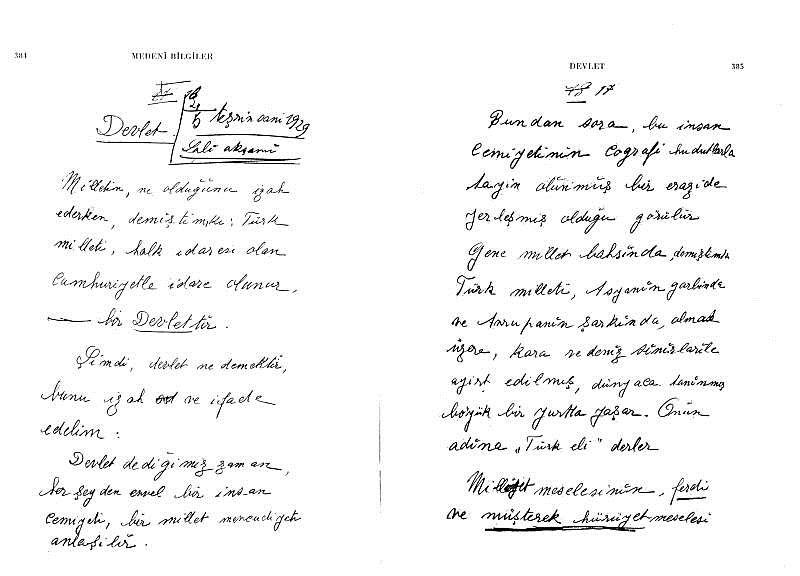 384
MEDENÎ BİLGİLER
Devlet
5 teşrin sani 1929
Salı akşamı
Milletin, ne olduğunu izah
ederken, demiştimki: Türk
milleti, halk idaresi olan
Cumhuriyetle idare olunur,
— bir Devlettir.
Şimdi, devlet ne demektir,
bunu izah ve ifade
edelim:
Devlet dediğimiz zaman,
her şeyden evvel bir insan
cemiyeti, bir millet mevcudiyeti
anlaşılır.
DEVLET
385
17
Bundan sora, bu insan
cemiyetinin coğrafi hudutlarla
tayin olunmuş bir erazide
yerleşmiş olduğu görülür
Gene millet bahsinda, demiştimki
Türk milleti, Asyanın garbinde
ve Avrupanın şarkında, olmak
üzere, kara ve deniz sınırlarile
ayırt edilmiş, dünyaca tanınmış
böyük bir yurtta yaşar. Onun
adına „Türk eli" derler
meselesinin, ferdi
ve müşterek hürriyet meselesi